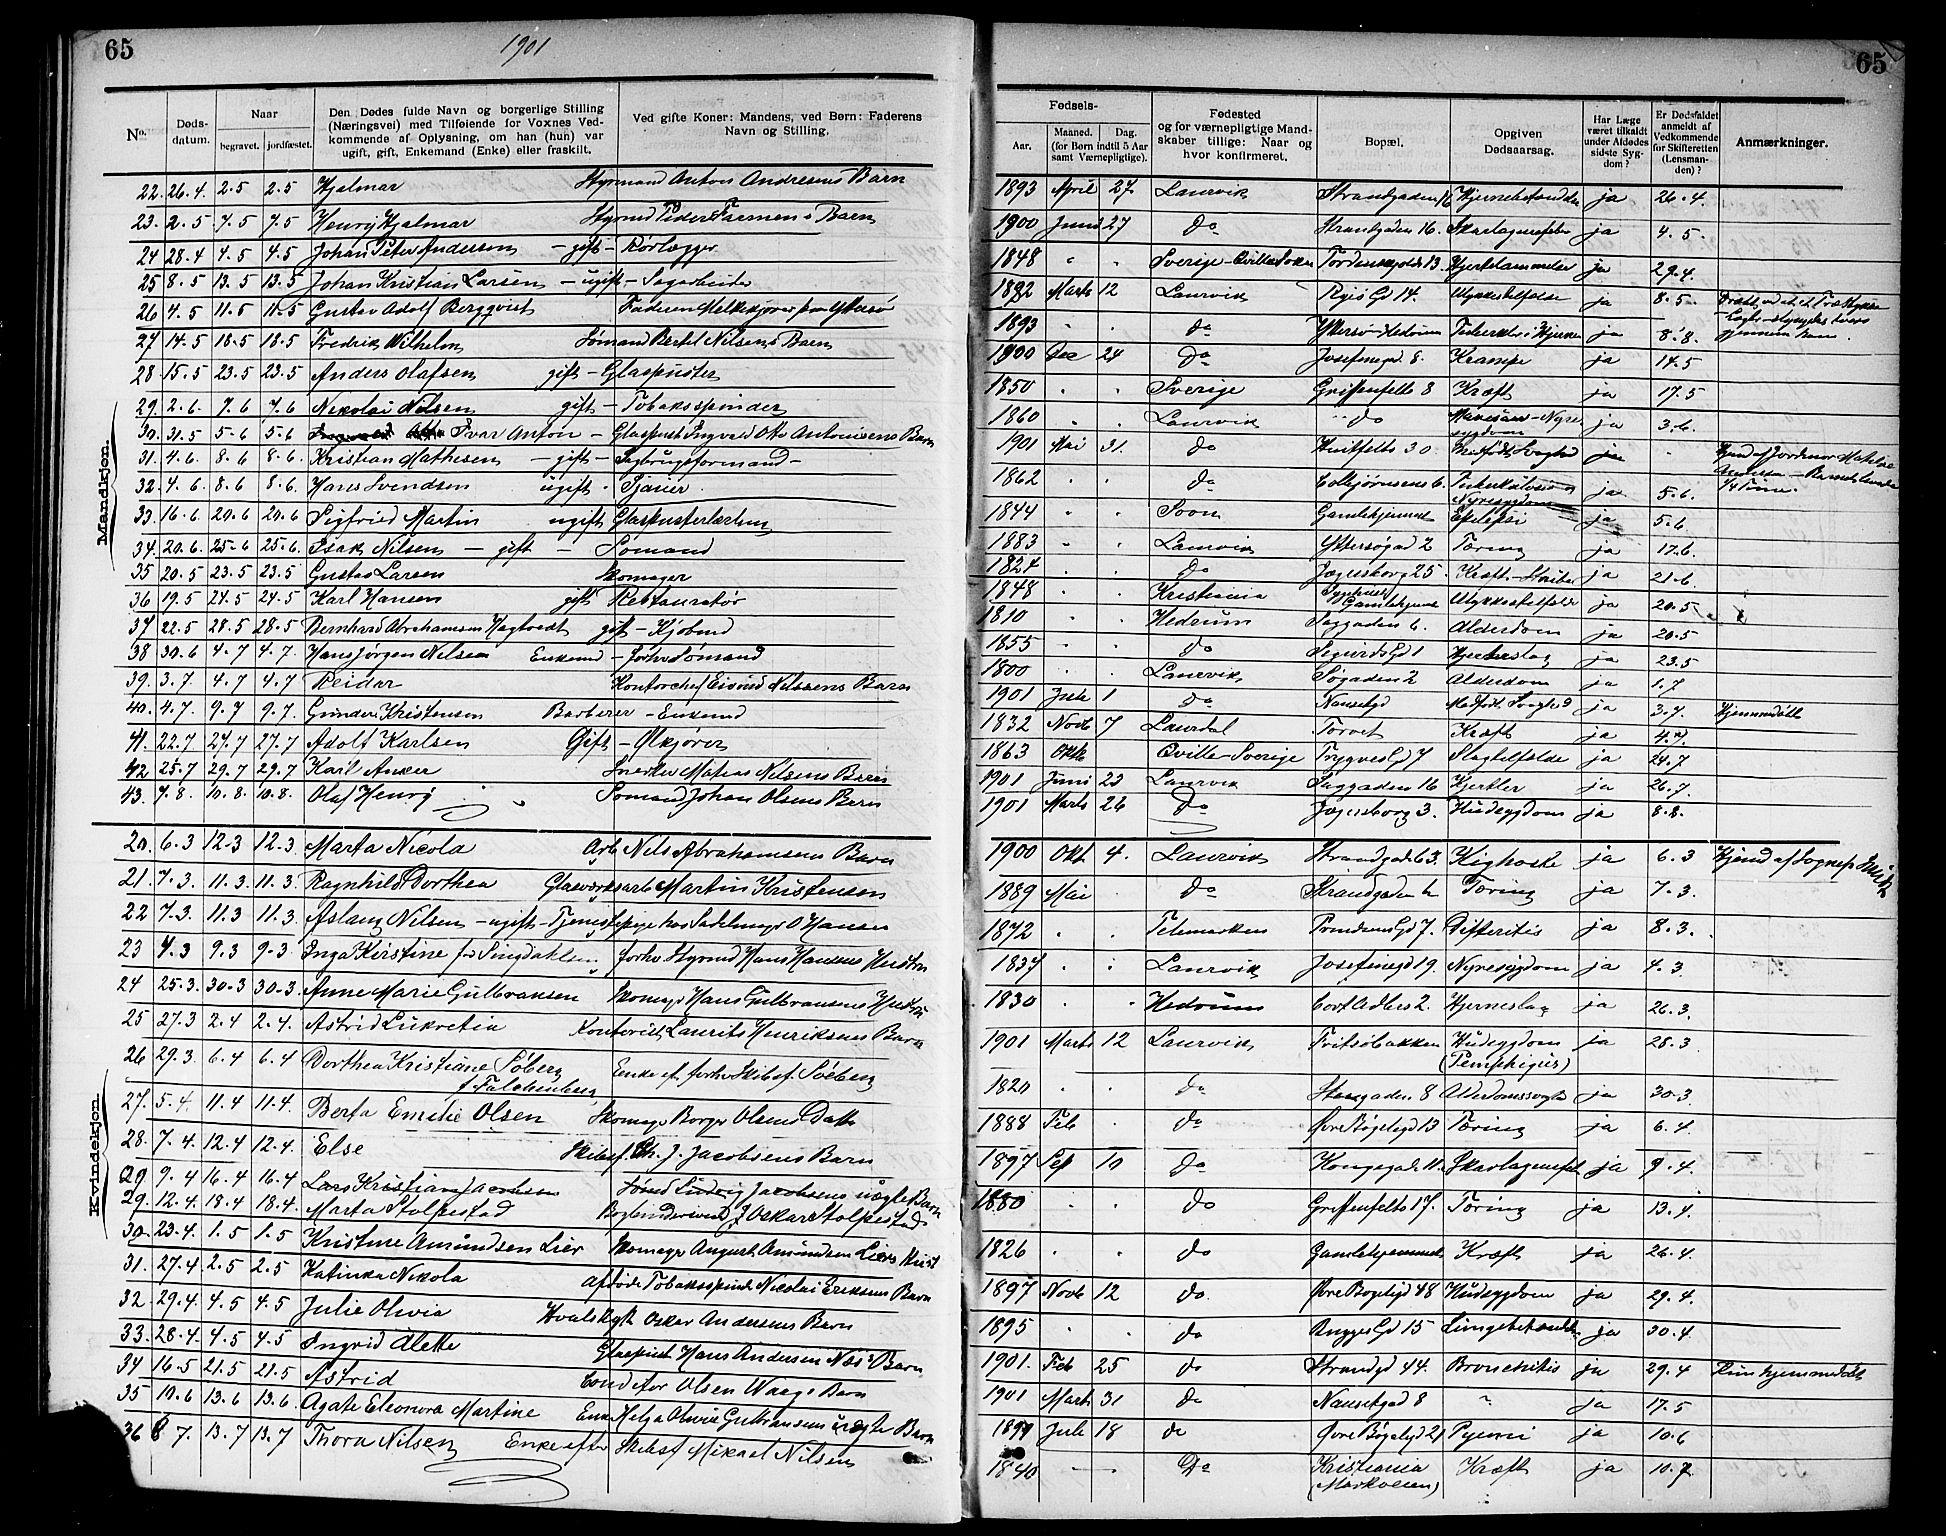 65
1901
65
No.
Døds-
datum.
Naar
begravet.
jordfæstet.
Den Dødes fulde Navn og borgerlige Stilling
(Næringsvei) med Tilføiende for Voxnes Ved-
kommende af Oplysning, om han (hun) var
ugift, gift, Enkemand (Enke) eller fraskilt.
Ved gifte Koner: Mandens, ved Børn: Faderens
Navn og Stilling.
Fødsels-
Aar.
Maaned. Dag.
(for Børn indtil 5 Aar
samt Værnepligtige).
Fødested
og for værnepligtige Mand-
skaber tillige: Naar og
hvor konfirmeret.
Bopæl.
Opgiven
Dødsaarsag.
Har Læge
været tilkaldt
under Afdødes
sidste Syg-
dom?
Er Dødsfaldet
anmeldt af
Vedkommende
for Skifteretten
(Lensman-
den)?
Anmærkninger.
Mandkjøn.
22. 26.4. 2.5 2.5 Hjalmar Styrmand Anton Andresens Barn 1893 April 27. Laurvik Strandgaden 16 ja 26-4.
23. 2.5 7.5 7.5 Henry Hjalmar Styrmd Peder Barn 1900 Juni 27 Do Strandgaden 16. Skarlagensfeber ja 4.5.
24 28.4 4.5 4.5 Johan Peter Andersen - gift - Rørlægger 1848 Sverige- Tordenskjolds 13. ja 29.4.
25 8.5 13.5 13.5 Johan Kristian Larsen - ugift - Sagarbeider 1882 Marts 12 Laurvik Gd 14. Ulykkestilfælde ja 8.5.
26 4.5 11.5 11.5 Gustav Adolf Bergqvist Faderen Melkekjører 1893 Do Yttersø - Hedrum ja 8.8.
27 14.5 18.5 18.5 Fredrik Wilhelm Sømand Bertel Nilsens Barn 1900 Dec 24 Do Josefinegd 8. Krampe ja 14.5
28 15.5 23.5 23.5 Anders Olafsen gift - Glaspuster 1850 Sverige Griffenfelts 8 Kræft ja 17.5
29. 2.6. 7.6 7.6 Nikolai Nilsen gift - Tobaksspinder 1860 Laurvik do ja 3.6.
30. 31.5 5-6 5-6 Ivar Anton - Glaspust Ingvald Oto Antonisens Barn 1901 Mai 31. Do Huitfelts 30 ja
31. 4.6. 8.6 8.6. Kristian Mathesen - gift - Sagbrugsformand - 1862 Do Colbjørnsens 6. Tuberkulose ja 5.6.
32. 4.6. 8.6 8.6. Hans Svendsen ugift - Sjauer 1844 Gamlehjemmet Epilepsi ja 5.6.
33. 16.6. 20.6 20.6. Sigfried Martin ugift Glaspusterlærling 1883 Laurvik Yttersøgad 2 Tæring ja 17.6.
34. 20.6. 25-6 25.6. Isak Nilsen - gift - Sømand 1824 Do Jægersborg 25. Kræft ja 21.6.
35 20.5 23.5 23.5 Gustav Larsen Skomager 1848 Kristiania Gamlehjem Ulykkestilfælde ja 20.5
36 19.5 24.5 24.5 Karl Hansen gift Restauratør 1810 Hedrum Saggaden 6. Alderdom ja 20.5
37 22.5 28.5 28.5 Bernhard Abrahamsen gift - Kjøbmd 1855 do Sigurds Gd 1 Hjerteslag ja 23.5
38 30.6 4.7 4.7. Hans Jørgen Nilsen Enkemd - forhv Sømand 1800 Laurvik Søgaden 2 Alderdom ja 1.7
39. 3.7. 4.7 4.7. Reidar Kontorchef Eivind Nilssens Barn 1901 Juli 1 do Nansetgd Medfødt Svaghed ja 3.7. Hjemmedøbt
40. 4.7. 9.7 9.7. Gunder Kristensen Barberer - Enkemd 1832 Novb 7 Laurdal Torvet Kræft ja 4.7.
41. 22.7 27.7 27.7 Adolf Karlsen Gift - Ølkjører 1863 Okt Qville - Sverige Trygves Gd 7 Slagtilfælde ja 24.7
42 25.7 29.7 29.7 Karl Anker Snedker Matias Nilsens Barn 1901 Juni 23 Laurvik Saggaden 16 Kjertler ja 26.7.
43. 7.8. 10.8. 10.8. Olaf Henry Sømand Johan Olsens Barn 1901 Marts 26 Do Jægersborg 3. Hudsygdom ja 8.8.
Kvindekjøn.
20. 6.3 12-3 12.3. Marta Nicola Arb Nils Abrahamsens Barn 1900 Okt 4. Laurvik Strandgad 63. Kighoste ja 6.3
21. 7.3. 11.3. 11.3. Ragnhild Dorthea Glasværksarb Martin Kristensen 1889 Mai do Strandgaden Tæring ja 7.3.
22 7.3. 11.3 11.3. Aslaug Nilsen - ugift - Tjenestepige hos Sadelmagr O Hansen 1872 Telemarken Gd 7. Difteritis ja 8.3.
23 4.3 9.3 9-3 Inga Kirstine forhv Styrmd Hans Hansens Hustru 1837 Laurvik Josefinegd 19. Nyresygdom ja 4.3.
24 25.3. 30-3 30-3. Anne Marie Gulbransen Skomagr Hans Gulbransens Hustru 1830 Hedrum Cort Adlers 2. Hjerneslag ja 26.3.
25 27.3 2.4 2.4. Astrid Lukretia Kontorist Laurits Henriksens Barn 1901 Marts 12 Laurvik Fritsøbakken Hudsygdom ja 28.3
(Pemphigus)
26 29.3. 6.4 6.4 Dorthea Kristiane Søberg Enke ef. forhv Skibsf. Søberg 1820 do 8 Alderdomssvagh ja 30.3.
f. Falchenberg
27. 5.4. 11.4 11.4. Berta Emilie Olsen Skomagr Borge Olsens Datter 1888 Feb do Øvre Bøgeligd 13 Tæring ja 6.4.
28. 7.4. 12.4 12.4. Else Skibsf. Chr. J. Jacobsens Barn 1897 Sep 10 do Kongegad. Skarlagensfeb ja 9.4.
29. 9.4 16.4 16.4 Lars Kristian Jacobsen Sømd Ludvig Jacobsens uægte Barn
29. 12.4. 18.4 18.4. Marta Stolpestad Bogbindersvend J Oskar Stolpestad 1880 do Griffenfelts 17. Tæring ja 13.4.
30. 23.4. 1.5 1.5 Kristine Amundsen Lier Skomagr August Amundsen Liers Hust 1826 do Gamlehjemmet, Kræft ja 26.4.
31. 27.4 2.5 2.5 Katinka Nikola Afdøde Tobaksspind Nicolai Eriksens Barn 1897 Novb 12 do. Øvre Bøgeligd 48 Hudsygdom ja 29.4.
32. 29.4. 4.5 4.5 Julie Olivia Hvalskyt Oskar Andersens Barn 1895 do Gd 15 Lungebetændelse ja 30.4.
33. 28.4. 4.5 4.5 Ingrid Alette Glaspust Hans Andersen Næs' Barn 1901. Feb 25 do Strandgd 44. Bronchitis ja 29.4 hjemmedøbt
34 16.5 21.5 21.5 Astrid Conditor Olsen Waage Barn 1901 Marts 31 do Nansetgad 8 " ja 17.5
35 10.6 13.6 13.6. Agate Eleonora Martine Enke Helga Olivie Gulbransens uægte Barn Juli 18 do Øvre Bøgeligd 21 ja 10.6
36 8 7. 13.7 13.7 Thora Nilsen Enke efter Skibsf Mikael Nilsen 1840 Do Kristiania Kræft ja 10.7.
(Markveien)